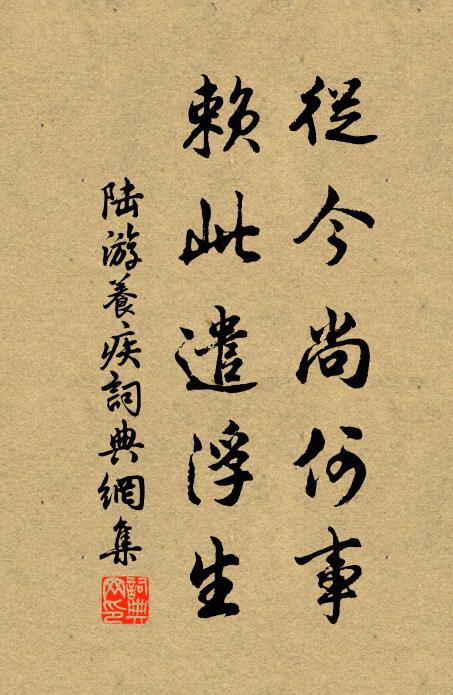 從今尚何事
賴此遣浮生
陸游養疾詞典網集
詞典网印